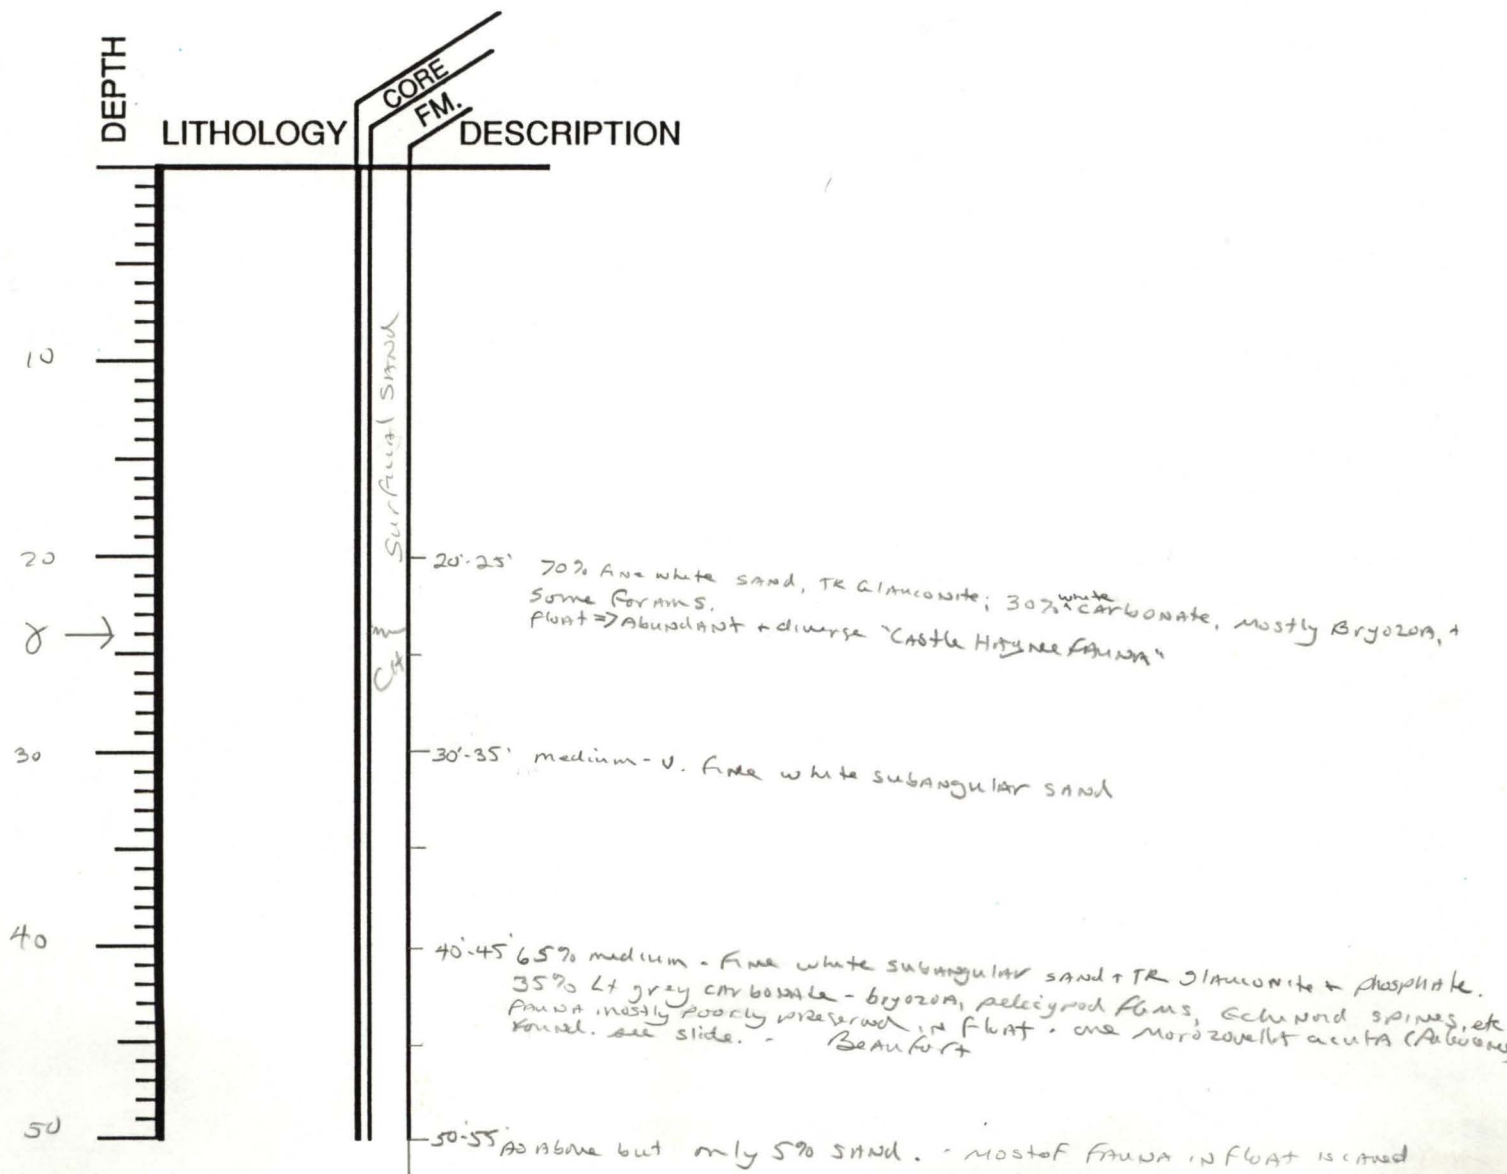 DEPTH
LITHOLOGY
CORE
FM.
DESCRIPTION
10
Surficial SAND
20
20'-25' 70% fine white SAND, TR Glauconite; 30% white CARbonATE, mostly Bryozoa, +
Some forams.
float => Abundant + diverse "Castle Hayne FAUNA"
γ →
30
30'-35' medium - v. fine white subangular SAND
40
40'-45' 65% medium - fine white subangular SAND + TR glauconite + phosphate.
35% Lt grey carbonate - bryozoa, pelecypod, Echinoid spines, etc
FAUNA mostly poorly preserved in float. one Morozovella acuta (Paleocene)
found. see slide. - Beaufort
50
50'-55' As Above but only 5% SAND. - most of FAUNA in float is caved